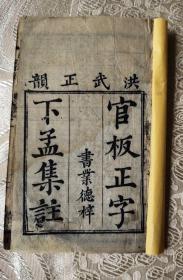 洪武正韻
官板正字
書業德梓
下孟集註